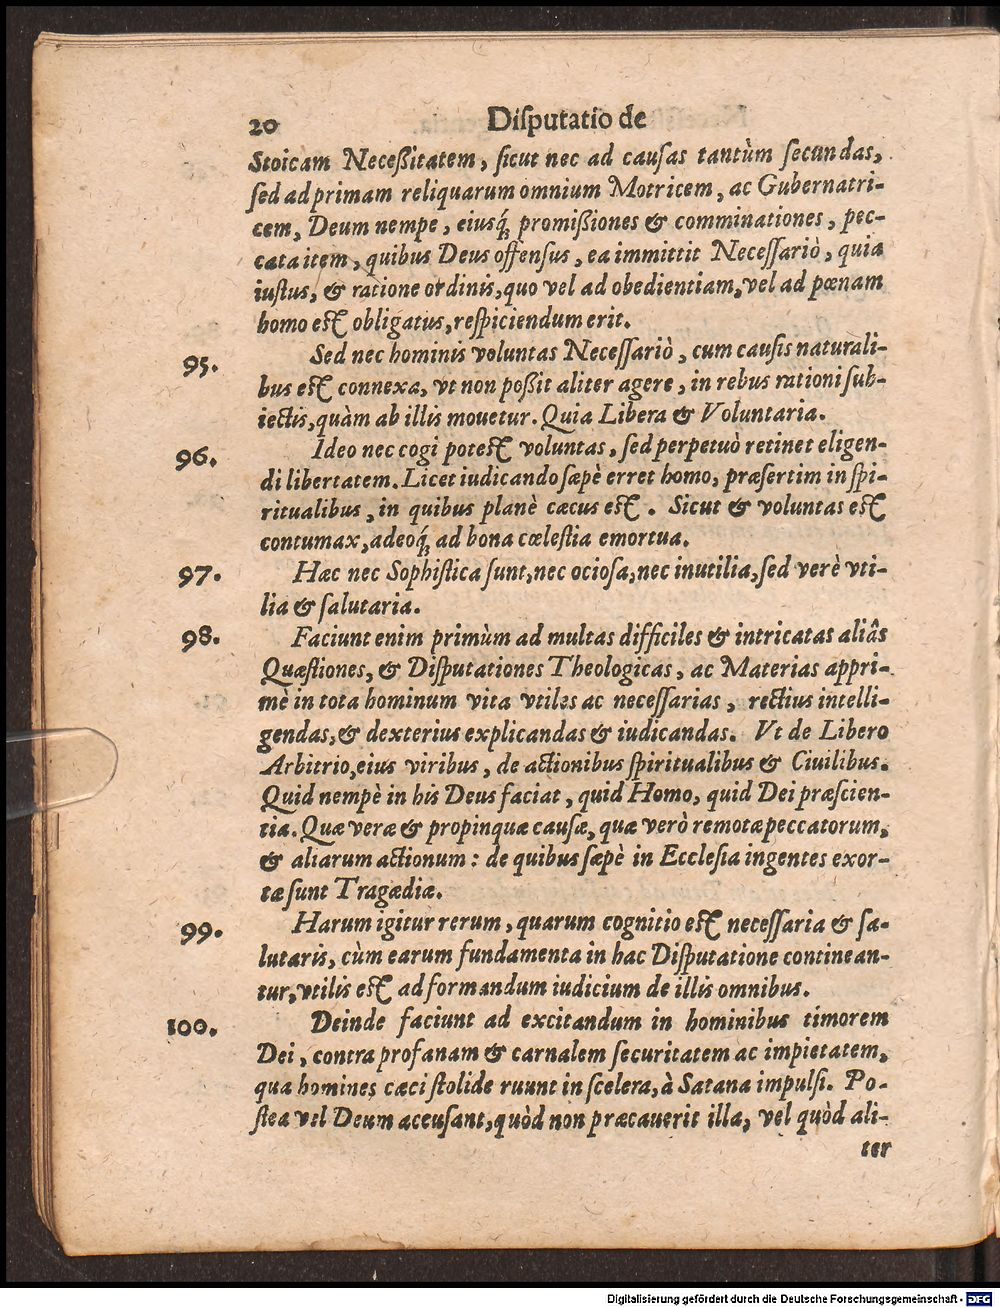 20 Diſputatio de
Stoicam Neceßitatem, ſicut nec ad cauſas tantùm ſecundas,
ſed ad primam reliquarum omnium Motricem, ac Gubernatri-
cem, Deum nempe, eiusq́; promißiones & comminationes, pec-
cata item, quibus Deus offenſus, ea immittit Neceſſariò, quia
iuſtus, & ratione ordinis, quo vel ad obedientiam, vel ad pœnam
homo eſt obligatus, reſpiciendum erit.
95. Sed nec hominis voluntas Neceſſariò, cum cauſis naturali-
bus eſt connexa, vt non poßit aliter agere, in rebus rationi ſub-
iectis, quàm ab illis mouetur. Quia Libera & Voluntaria.
96. Ideo nec cogi poteſt voluntas, ſed perpetuò retinet eligen-
di libertatem. Licet iudicando ſæpè erret homo, præſertim in ſpi-
ritualibus, in quibus planè cæcus eſt. Sicut & voluntas eſt
contumax, adeoq́; ad bona cœleſtia emortua.
97. Hæc nec Sophiſtica ſunt, nec ocioſa, nec inutilia, ſed verè vti-
lia & ſalutaria.
98. Faciunt enim primùm ad multas difficiles & intricatas aliâs
Quæſtiones, & Diſputationes Theologicas, ac Materias appri-
mè in tota hominum vita vtiles ac neceſſarias, rectius intelli-
gendas, & dexterius explicandas & iudicandas. Vt de Libero
Arbitrio, eius viribus, de actionibus ſpiritualibus & Ciuilibus.
Quid nempè in his Deus faciat, quid Homo, quid Dei præſcien-
tia. Quæ veræ & propinquæ cauſæ, quæ verò remotæ peccatorum,
& aliarum actionum: de quibus ſæpè in Eccleſia ingentes exor-
tæ ſunt Tragœdiæ.
99. Harum igitur rerum, quarum cognitio eſt neceſſaria & ſa-
lutaris, cùm earum fundamenta in hac Diſputatione continean-
tur, vtilis eſt ad formandum iudicium de illis omnibus.
100. Deinde faciunt ad excitandum in hominibus timorem
Dei, contra profanam & carnalem ſecuritatem ac impietatem,
qua homines cæci ſtolide ruunt in ſcelera, à Satana impulſi. Po-
ſtea vel Deum accuſant, quòd non præcauerit illa, vel quòd ali-
ter
Digitalisierung gefördert durch die Deutsche Forschungsgemeinschaft - DFG